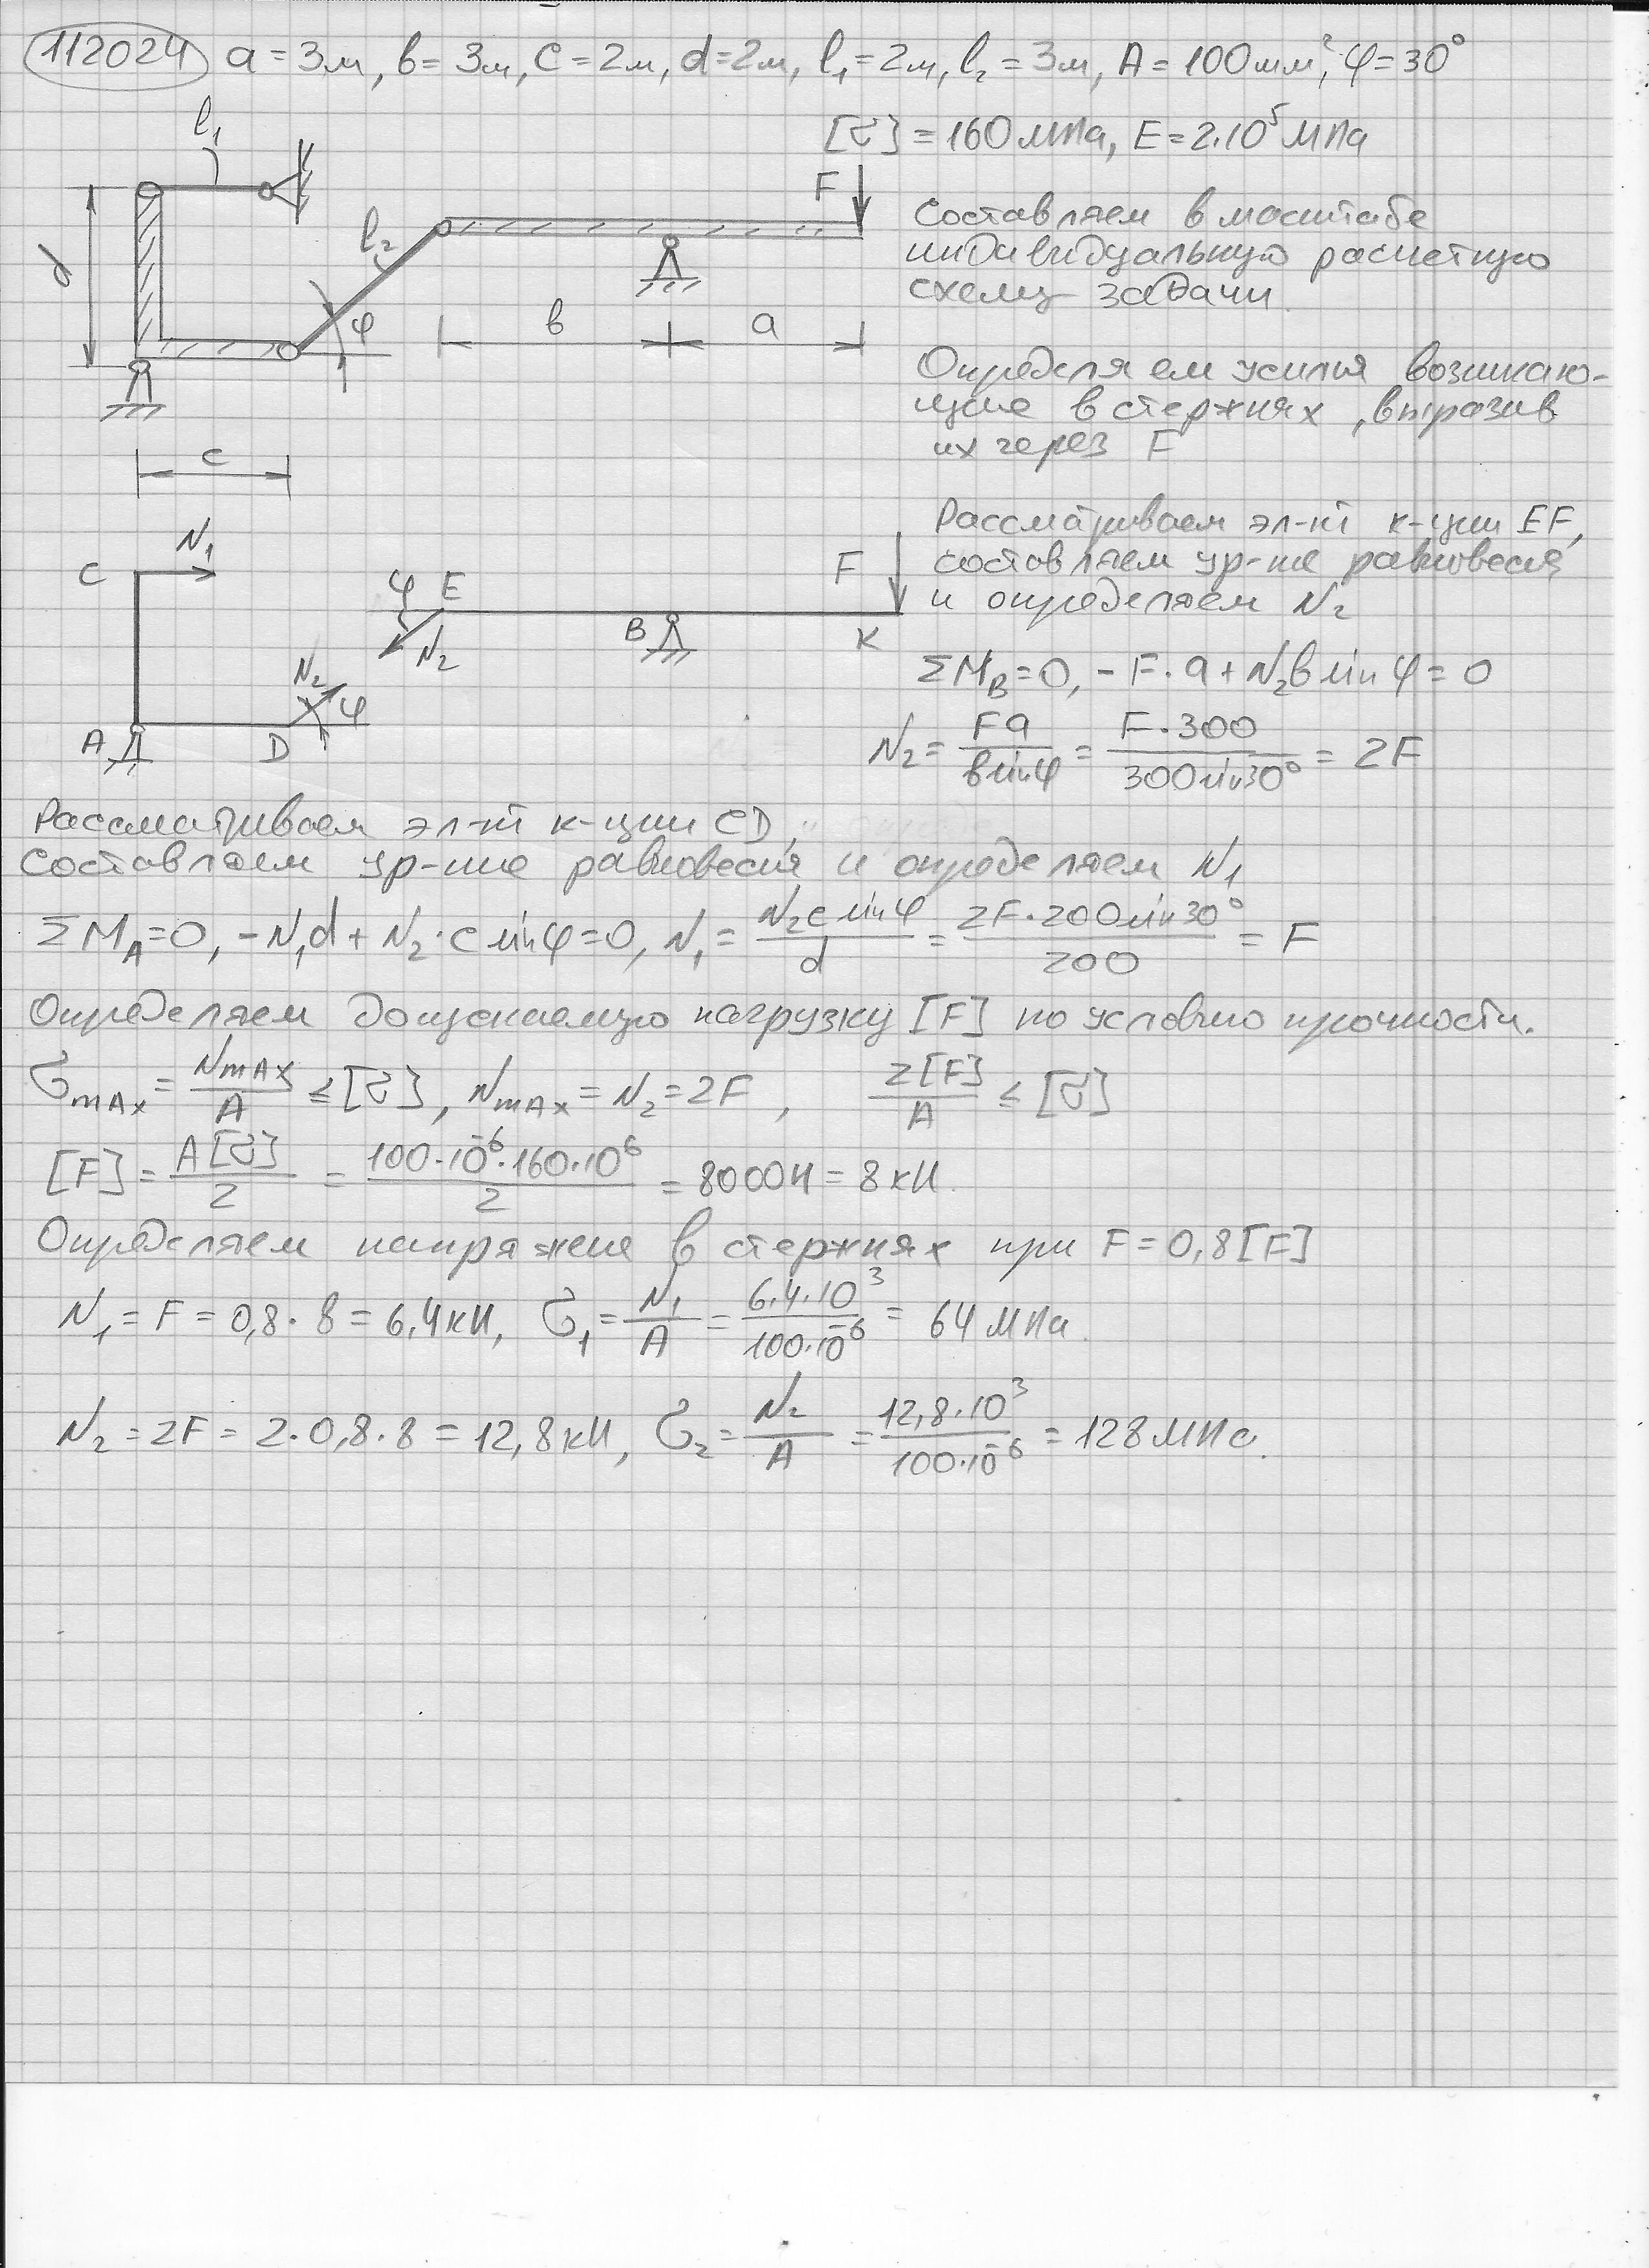 112024 a = 3м, в = 3м, c = 2м, d = 2м, l₁ = 2м, l₂ = 3м, A = 100мм², φ = 30°
[σ] = 160 МПа, E = 2·10⁵ МПа
l₁
F
Составляем в масштабе
l₂
индивидуальную расчетную
d
схему задачи.
φ
в
a
Определяем усилия возникаю-
щие в стержнях, выразив
их через F
c
Рассматриваем эл-нт к-ции EF,
составляем ур-ие равновесия
и определяем N₂
C
N₁
φ
E
F
N₂
B
K
N₂
φ
A
D
ΣM_B = 0, -F·a + N₂в sin φ = 0
N₂ = Fa / в sin φ = F·300 / 300 sin 30° = 2F
Рассматриваем эл-нт к-ции CD,
составляем ур-ние равновесия и определяем N₁
ΣM_A = 0, -N₁d + N₂·c sin φ = 0, N₁ = N₂c sin φ / d = 2F·200 sin 30° / 200 = F
Определяем допускаемую нагрузку [F] по условию прочности.
σ_max = N_max / A ≤ [σ], N_max = N₂ = 2F, 2[F] / A ≤ [σ]
[F] = A[σ] / 2 = 100·10⁻⁶·160·10⁶ / 2 = 8000 Н = 8 кН.
Определяем напряжение в стержнях при F = 0,8[F]
N₁ = F = 0,8·8 = 6,4 кН, σ₁ = N₁ / A = 6,4·10³ / 100·10⁻⁶ = 64 МПа.
N₂ = 2F = 2·0,8·8 = 12,8 кН, σ₂ = N₂ / A = 12,8·10³ / 100·10⁻⁶ = 128 МПа.